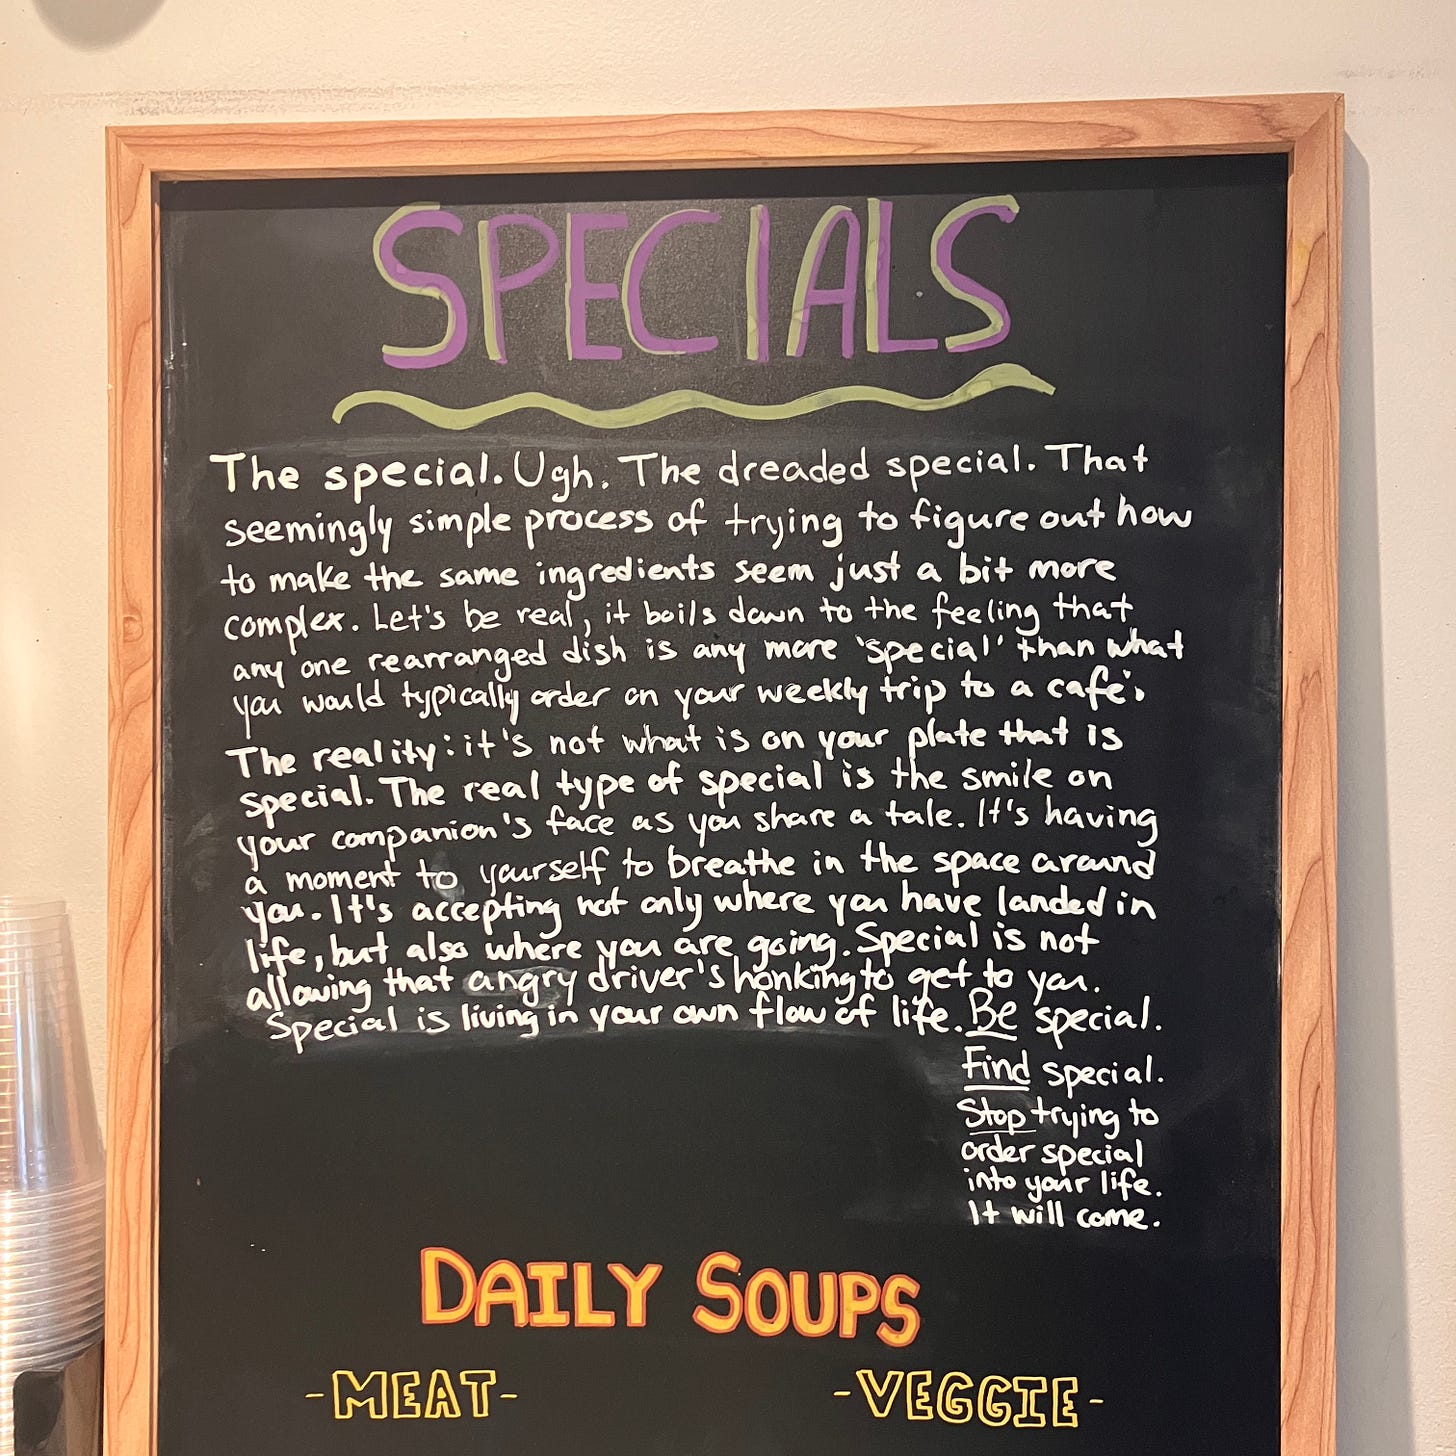 SPECIALS
The special. Ugh. The dreaded special. That
seemingly simple process of trying to figure out how
to make the same ingredients seem just a bit more
complex. Let's be real, it boils down to the feeling that
any one rearranged dish is any more 'special' than what
you would typically order on your weekly trip to a café.
The reality: it's not what is on your plate that is
special. The real type of special is the smile on
your companion's face as you share a tale. It's having
a moment to yourself to breathe in the space around
you. It's accepting not only where you have landed in
life, but also where you are going. Special is not
allowing that angry driver's honking to get to you.
Special is living in your own flow of life. Be special.
Find special.
Stop trying to
order special
into your life.
It will come.
DAILY SOUPS
-MEAT- -VEGGIE-